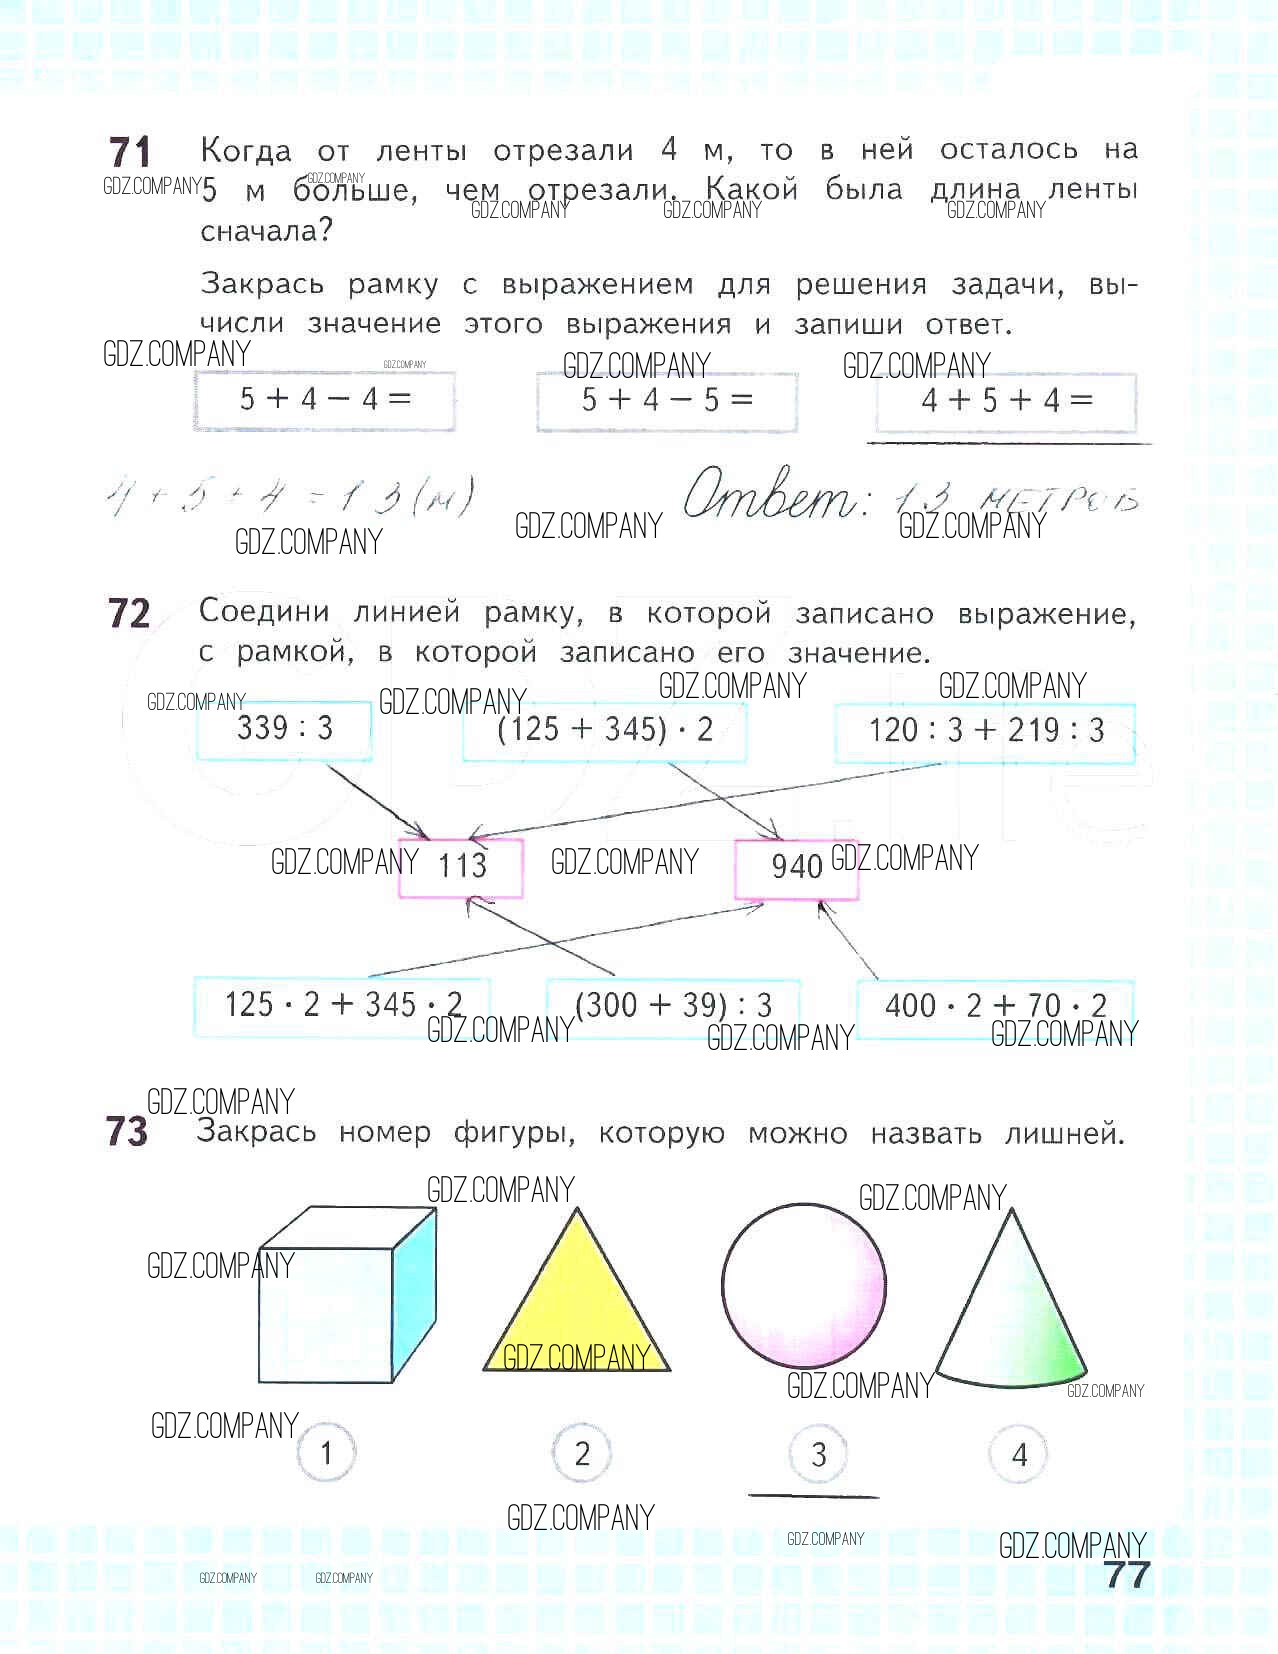 71 Когда от ленты отрезали 4 м, то в ней осталось на
GDZ.COMPANY 5 м больше, чем отрезали. Какой была длина ленты
GDZ.COMPANY
GDZ.COMPANY GDZ.COMPANY GDZ.COMPANY
сначала?
Закрась рамку с выражением для решения задачи, вы-
числи значение этого выражения и запиши ответ.
GDZ.COMPANY GDZ.COMPANY GDZ.COMPANY GDZ.COMPANY
5 + 4 − 4 = 5 + 4 − 5 = 4 + 5 + 4 =
4 + 5 + 4 = 13 (м) Ответ: 13 метров
GDZ.COMPANY GDZ.COMPANY GDZ.COMPANY
72 Соедини линией рамку, в которой записано выражение,
с рамкой, в которой записано его значение.
GDZ.COMPANY GDZ.COMPANY GDZ.COMPANY GDZ.COMPANY
339 : 3 (125 + 345) · 2 120 : 3 + 219 : 3
GDZ.COMPANY 113 GDZ.COMPANY 940 GDZ.COMPANY
125 · 2 + 345 · 2 (300 + 39) : 3 400 · 2 + 70 · 2
GDZ.COMPANY GDZ.COMPANY GDZ.COMPANY
GDZ.COMPANY
73 Закрась номер фигуры, которую можно назвать лишней.
GDZ.COMPANY GDZ.COMPANY
GDZ.COMPANY
GDZ.COMPANY
GDZ.COMPANY GDZ.COMPANY
GDZ.COMPANY
1 2 3 4
GDZ.COMPANY GDZ.COMPANY GDZ.COMPANY
GDZ.COMPANY GDZ.COMPANY 77